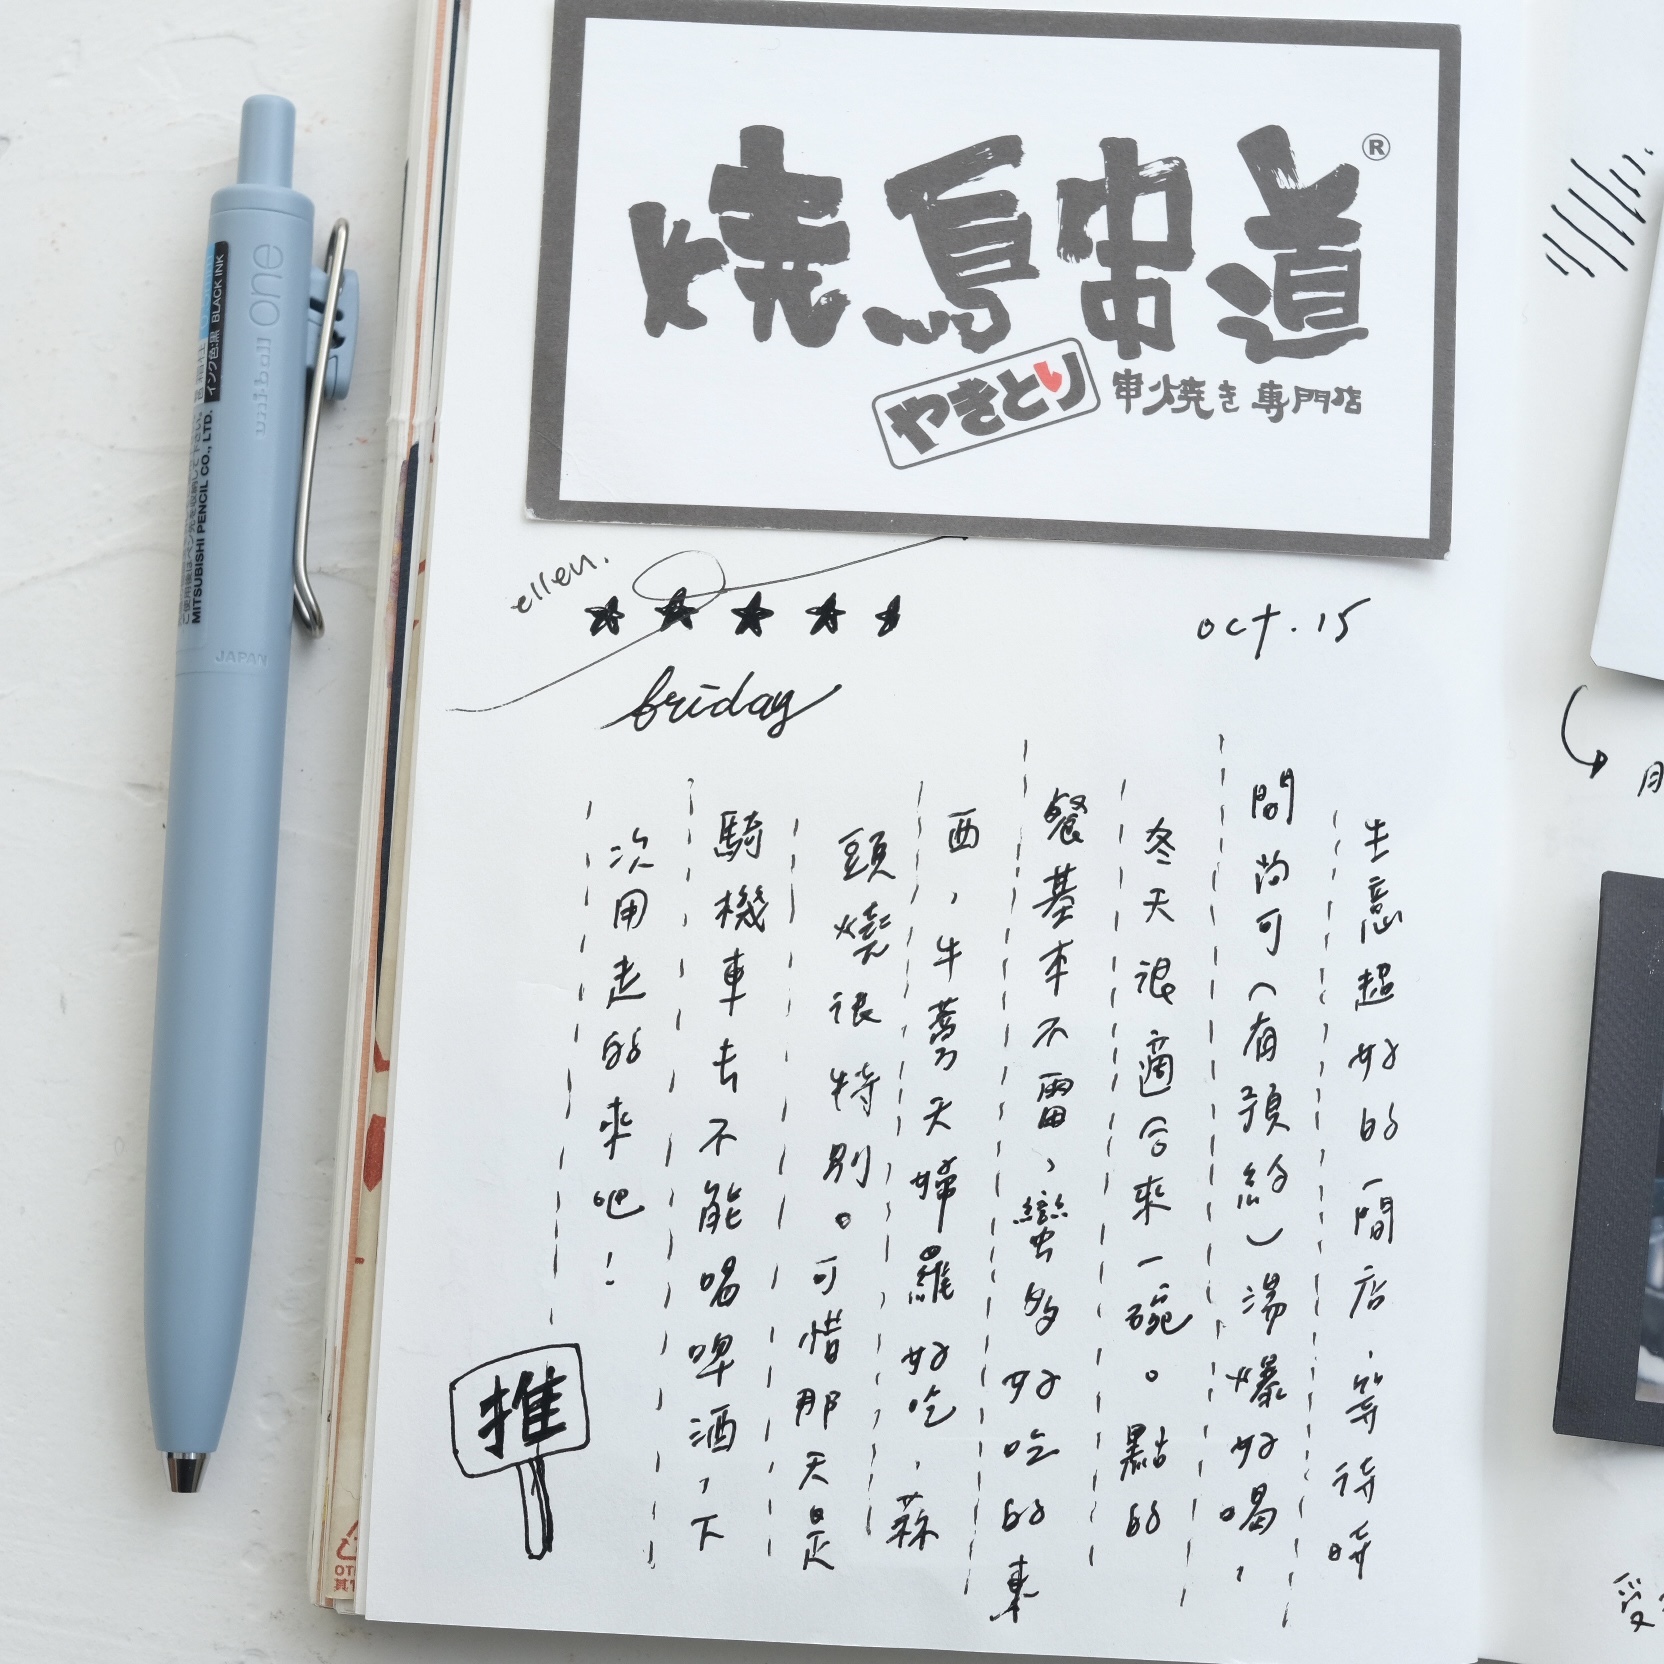 燒鳥串道®
やきとり 串燒き專門店
ellen.
oct.15
friday
生意超好的一間店、等待時
間尚可(有預約)湯爆好喝,
冬天很適合來一碗。點的
餐基本不雷,蠻多好吃的東
西,牛蒡天婦羅好吃、蒜
頭燒很特別。可惜那天是
騎機車去不能喝啤酒,下
次用走的來吧!
推
uni-ball one
インク色:黒 BLACK INK
MITSUBISHI PENCIL CO., LTD.
JAPAN